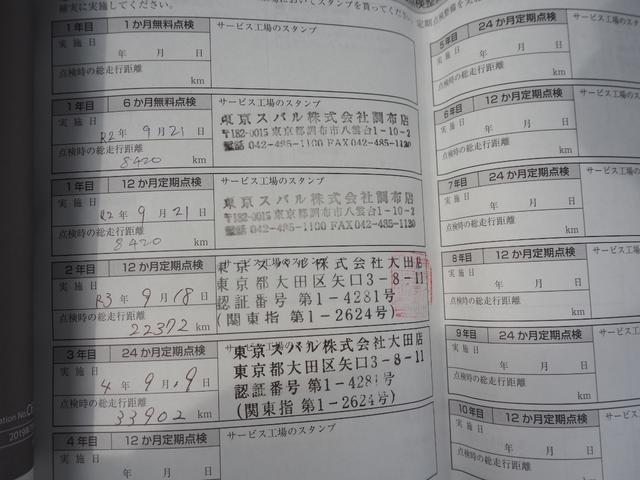 確実に実施してください。
1年目 1か月無料点検 サービス工場のスタンプ
実施日
年 月 日
点検時の総走行距離
km
1年目 6か月無料点検 サービス工場のスタンプ
実施日
R2年 9月21日
点検時の総走行距離
8420 km
東京スバル株式会社調布店
〒182-0015 東京都調布市八雲台1-10-2
電話 042-485-1100 FAX042-485-1131
1年目 12か月定期点検 サービス工場のスタンプ
実施日
R2年 9月21日
点検時の総走行距離
8420 km
東京スバル株式会社調布店
〒182-0015 東京都調布市八雲台1-10-2
電話 042-485-1100 FAX042-485-1131
2年目 12か月定期点検 サービス工場のスタンプ
実施日
R3年 9月18日
点検時の総走行距離
22372 km
東京スバル株式会社大田店
東京都大田区矢口3-8-11
認証番号 第1-4281号
(関東指 第1-2624号)
3年目 24か月定期点検 サービス工場のスタンプ
実施日
4年 9月9日
点検時の総走行距離
33902 km
東京スバル株式会社大田店
東京都大田区矢口3-8-11
認証番号 第1-4281号
(関東指 第1-2624号)
4年目 12か月定期点検 サービス工場のスタンプ
実施日
年 月 日
点検時の総走行距離
5年目 24か月定期点検
実施日
年 月 日
点検時の総走行距離
km
6年目 12か月定期点検
実施日
年 月 日
点検時の総走行距離
km
7年目 12か月定期点検
実施日
年 月 日
点検時の総走行距離
km
8年目 12か月定期点検
実施日
年 月 日
点検時の総走行距離
km
9年目 24か月定期点検
実施日
年 月 日
点検時の総走行距離
km
10年目 12か月定期点検
実施日
年 月 日
点検時の総走行距離